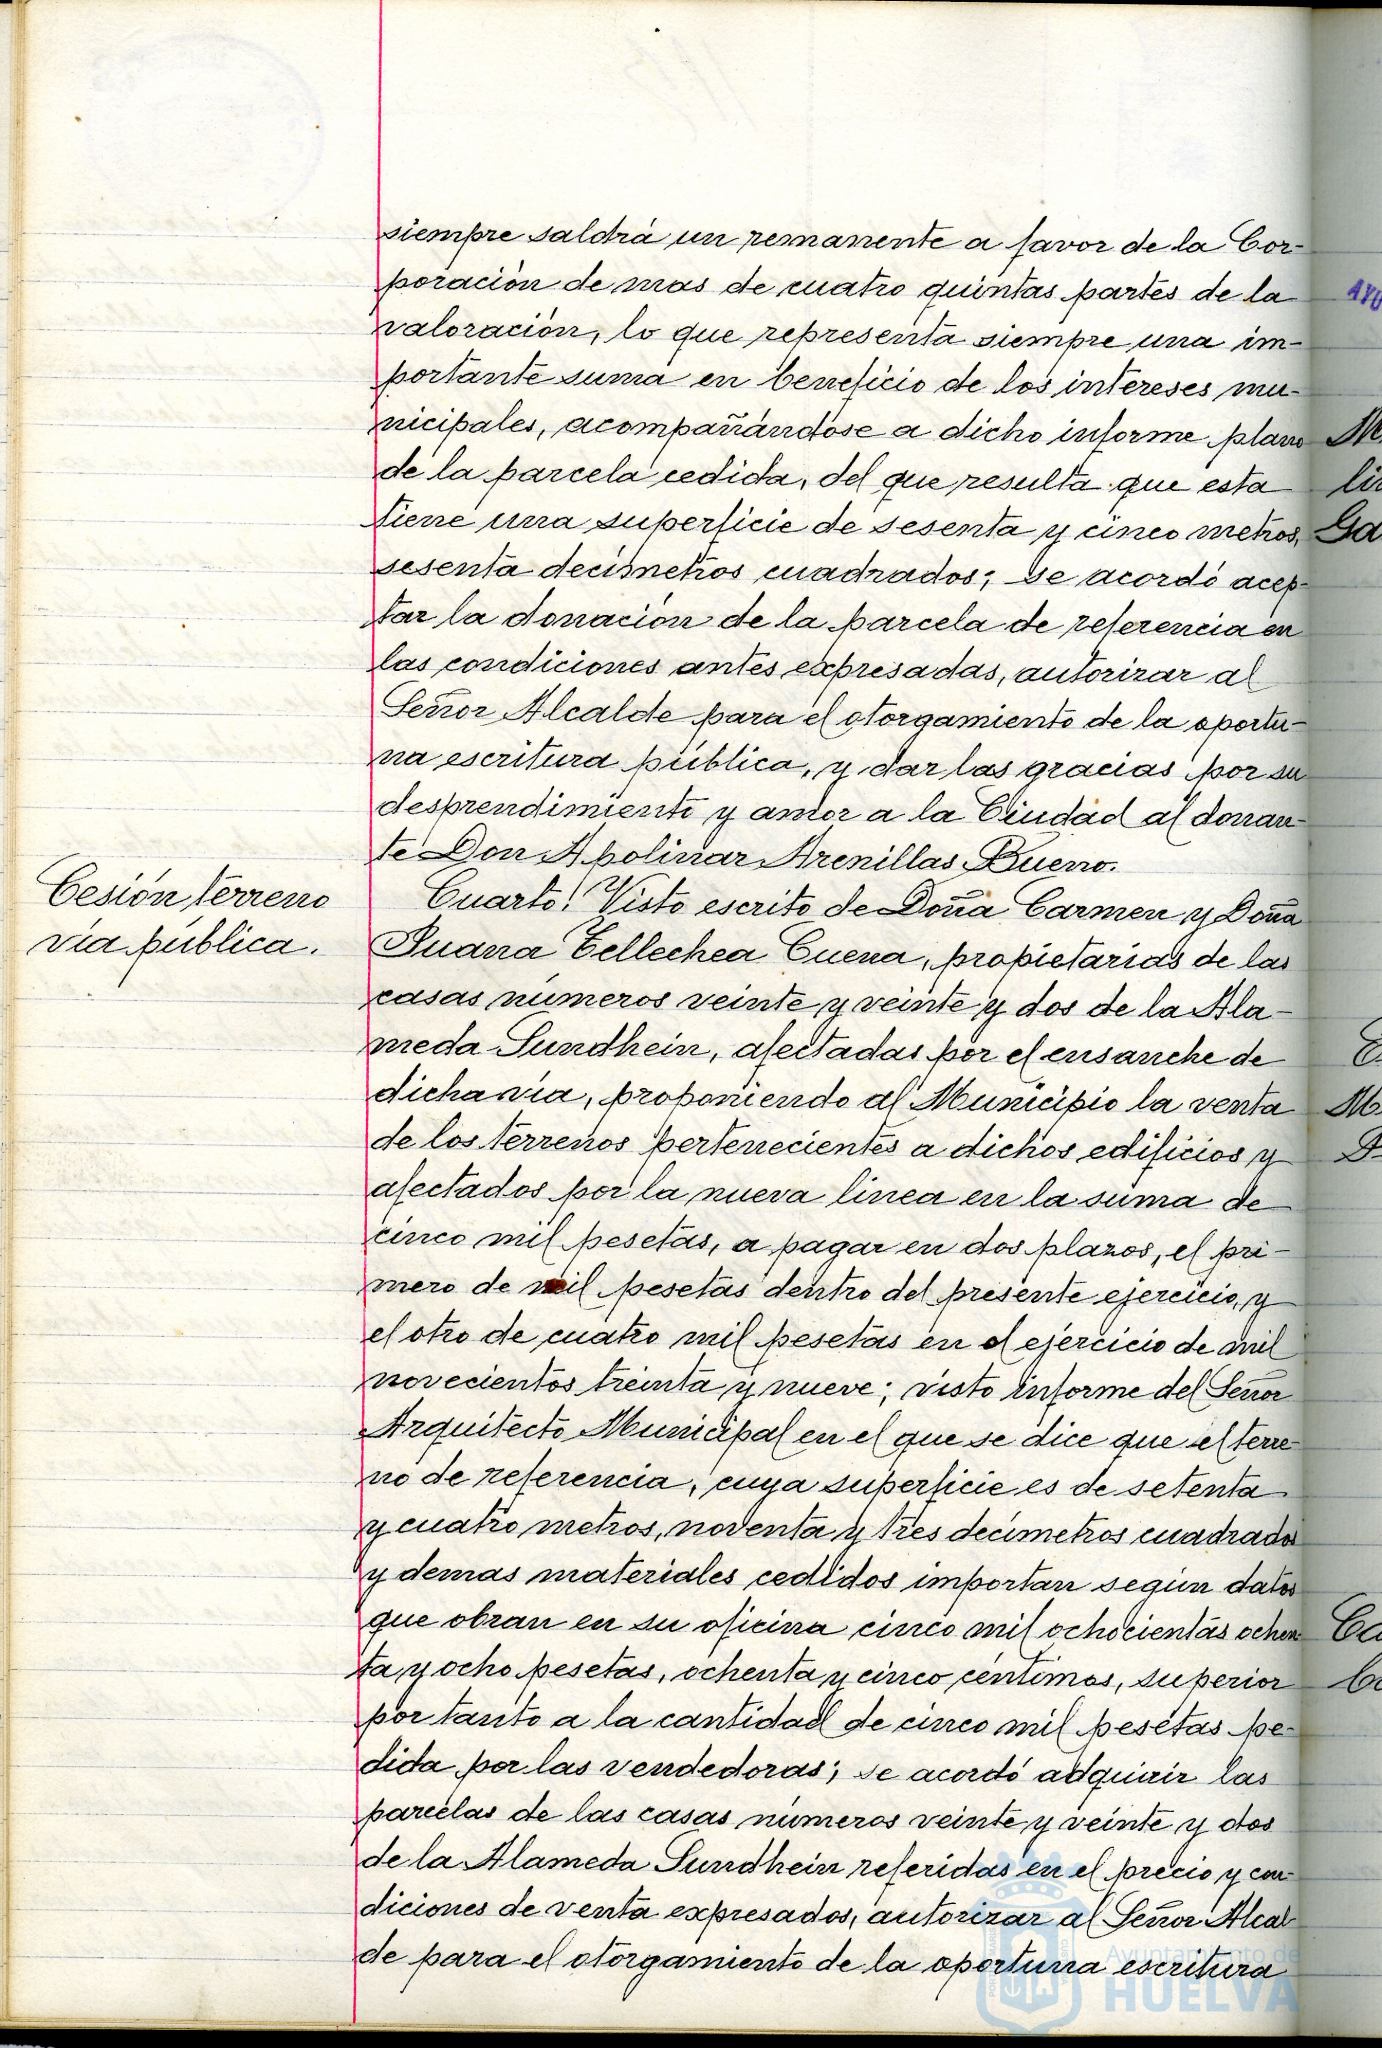 siempre saldrá un remanente a favor de la Cor-
poración de mas de cuatro quintas partes de la
valoración, lo que representa siempre una im-
portante suma en beneficio de los intereses mu-
nicipales, acompañándose a dicho informe plano
de la parcela cedida, del que resulta que esta
tiene una superficie de sesenta y cinco metros,
sesenta decímetros cuadrados; se acordó acep-
tar la donación de la parcela de referencia en
las condiciones antes expresadas, autorizar al
Señor Alcalde para el otorgamiento de la oportu-
na escritura pública, y dar las gracias por su
desprendimiento y amor a la Ciudad al donan-
te Don Apolinar Arenillas Bueno.
Cesión terreno
vía pública.
Cuarto: Visto escrito de Doña Carmen y Doña
Juana Tellechea Cuena, propietarias de las
casas números veinte y veinte y dos de la Ala-
meda Sundhein, afectadas por el ensanche de
dicha vía, proponiendo al Municipio la venta
de los terrenos pertenecientes a dichos edificios y
afectados por la nueva linea en la suma de
cinco mil pesetas, a pagar en dos plazos, el pri-
mero de mil pesetas dentro del presente ejercicio, y
el otro de cuatro mil pesetas en el ejercicio de mil
novecientos treinta y nueve; visto informe del Señor
Arquitecto Municipal en el que se dice que el terre-
no de referencia, cuya superficie es de setenta
y cuatro metros, noventa y tres decímetros cuadrados
y demas materiales cedidos importan según datos
que obran en su oficina cinco mil ochocientas ochen
ta y ocho pesetas, ochenta y cinco céntimos, superior
por tanto a la cantidad de cinco mil pesetas pe-
dida por las vendedoras; se acordó adquirir las
parcelas de las casas números veinte y veinte y dos
de la Alameda Sundhein referidas en el precio y con-
diciones de venta expresados, autorizar al Señor Alcal
de para el otorgamiento de la oportuna escritura
Ayuntamiento de
HUELVA